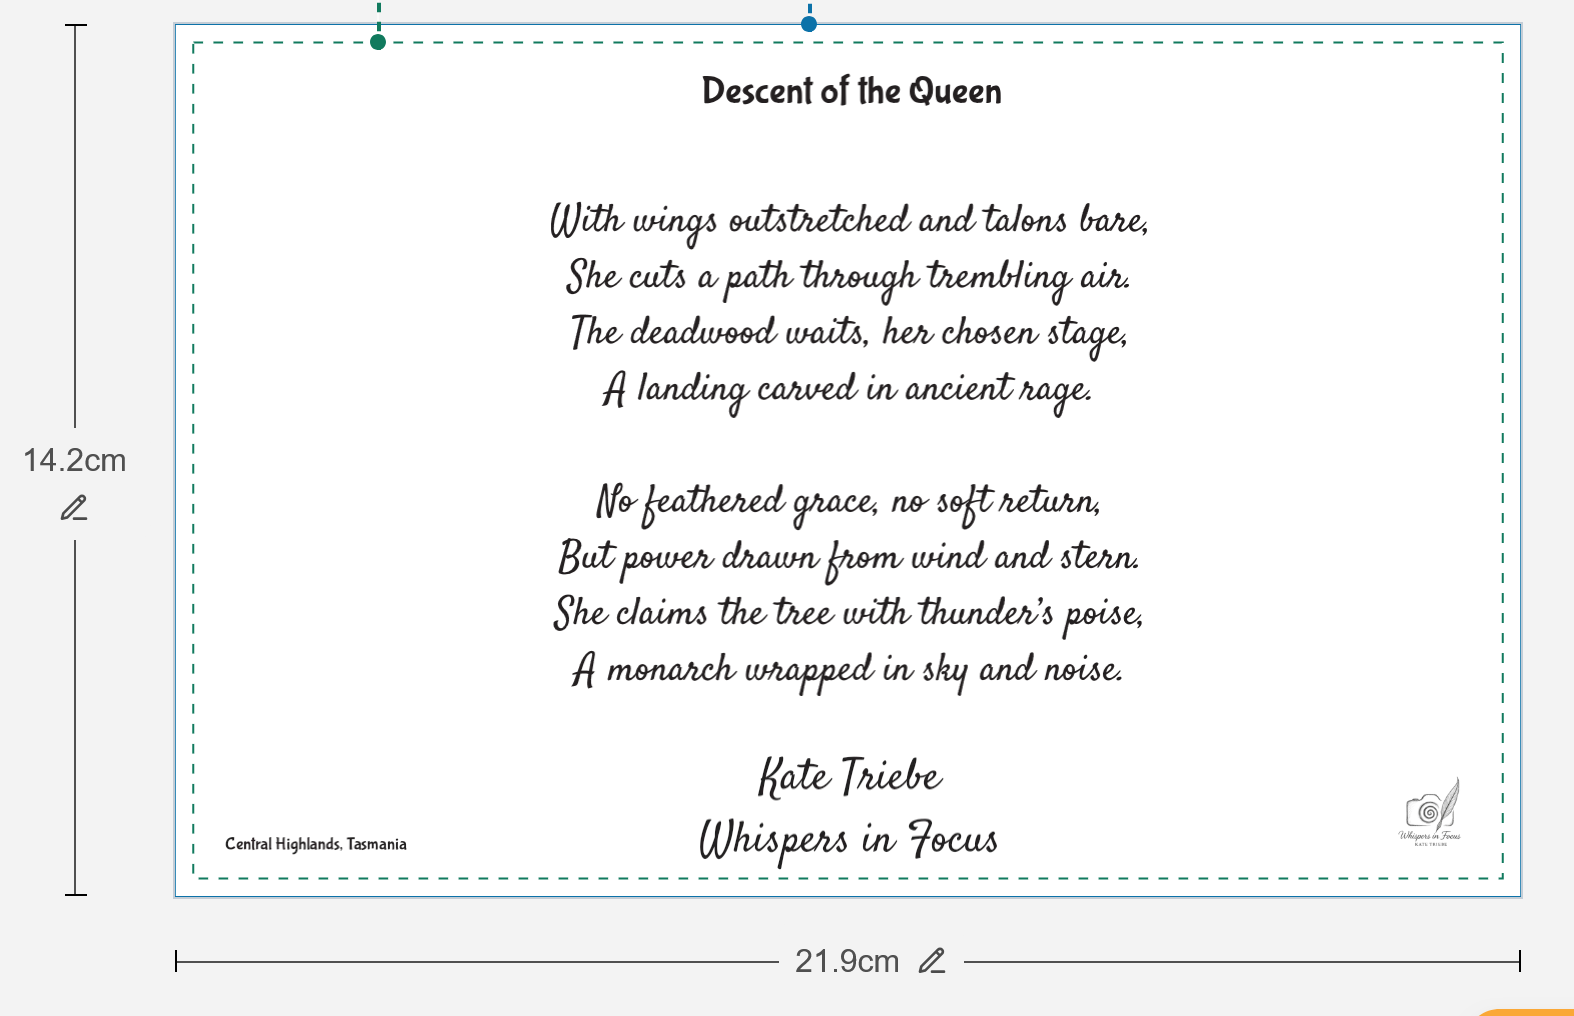 Descent of the Queen
With wings outstretched and talons bare,
She cuts a path through trembling air.
The deadwood waits, her chosen stage,
A landing carved in ancient rage.
No feathered grace, no soft return,
But power drawn from wind and stern.
She claims the tree with thunder's poise,
A monarch wrapped in sky and noise.
Kate Triebe
Whispers in Focus
Central Highlands, Tasmania
Whispers in Focus
KATE TRIEBE
14.2cm
21.9cm